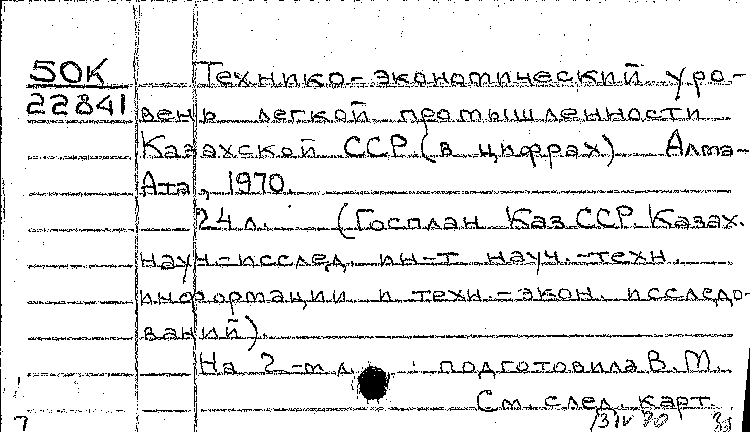 50К Технико-экономический уро-
22841 вень легкой промышленности
Казахской ССР. (в цифрах) Алма-
Ата, 1970.
24 л. (Госплан Каз.ССР. Казах.
науч-исслед. ин-т науч.-техн.
информации и техн.-экон. исследо-
ваний).
На 2-м л. : подготовила В. М.
См. след. карт.